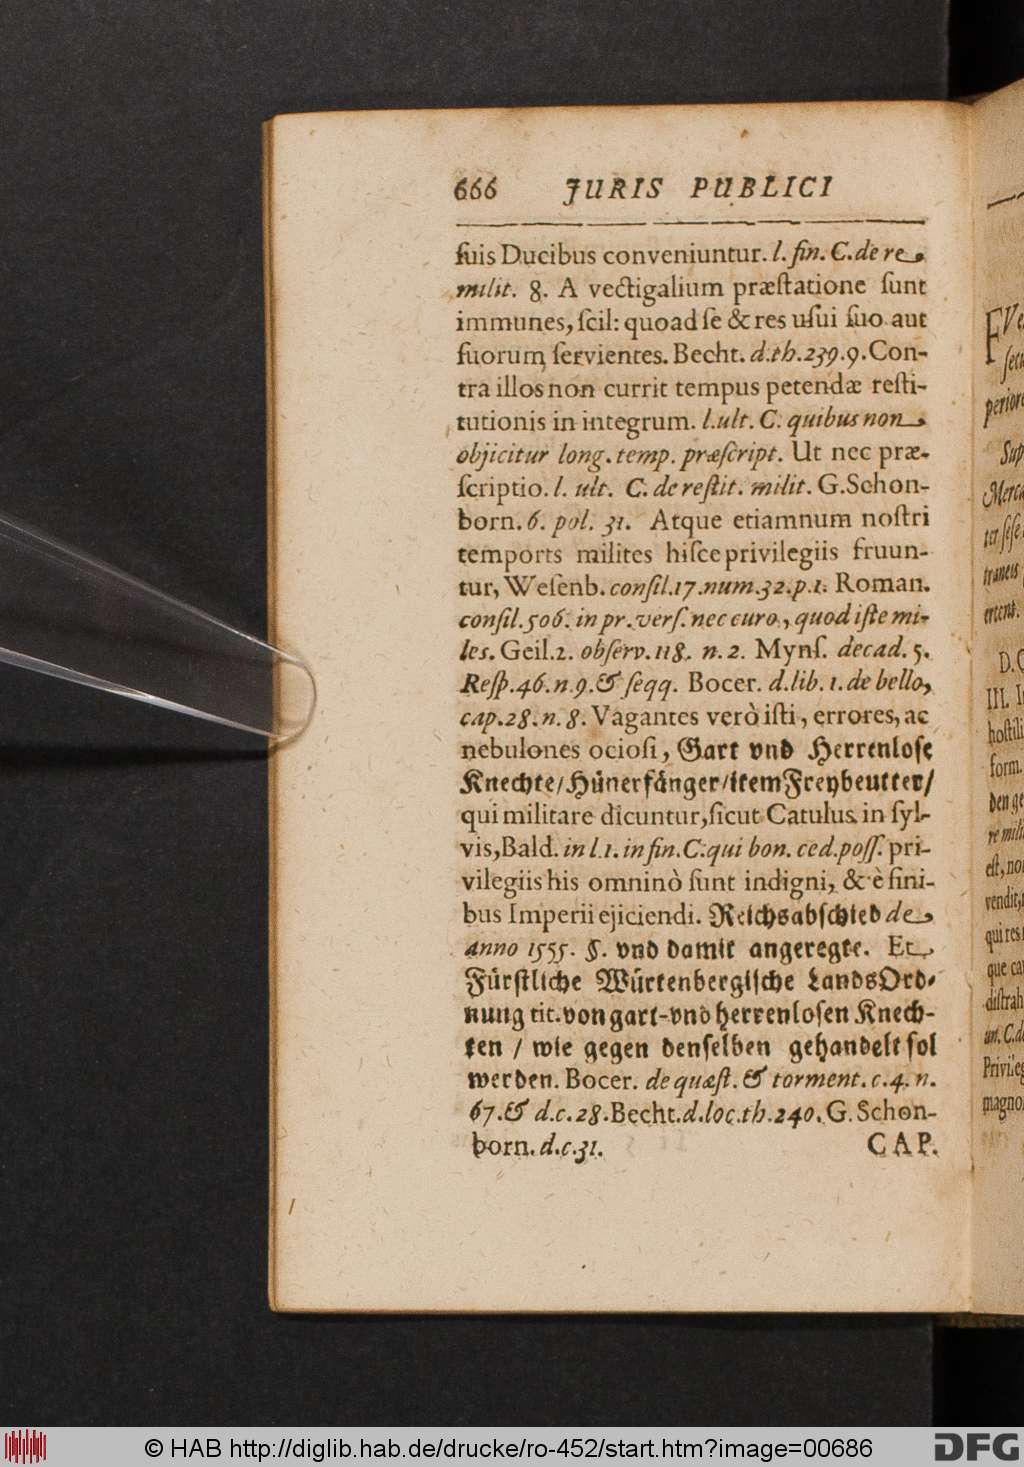 666 JURIS PUBLICI
ſuis Ducibus conveniuntur. l. fin. C. de re
milit. 8. A vectigalium præſtatione ſunt
immunes, ſcil: quoad ſe & res uſui ſuo aut
ſuorum ſervientes. Becht. d. th. 239. 9. Con-
tra illos non currit tempus petendæ reſti-
tutionis in integrum. l. ult. C. quibus non
objicitur long. temp. præſcript. Ut nec præ-
ſcriptio. l. ult. C. de reſtit. milit. G. Schon-
born. 6. pol. 31. Atque etiamnum noſtri
temporis milites hiſce privilegiis fruun-
tur, Weſenb. conſil. 17. num. 32. p. 1. Roman.
conſil. 506. in pr. verſ. nec curo, quod iſte mi-
les. Geil. 2. obſerv. 118. n. 2. Mynſ. decad. 5.
Reſp. 46. n. 9. & ſeqq. Bocer. d. lib. 1. de bello,
cap. 28. n. 8. Vagantes verò iſti, errores, ac
nebulones ocioſi, Gart vnd Herrenloſe
Knechte/ Hünerfänger/ item Freybeutter/
qui militare dicuntur, ſicut Catulus in ſyl-
vis, Bald. in l. 1. in fin. C. qui bon. ced. poſſ. pri-
vilegiis his omninò ſunt indigni, & è fini-
bus Imperii ejiciendi. Reichsabſchied de
anno 1555. §. vnd damit angeregte. Et
Fürſtliche Würtenbergiſche LandsOrd-
nung tit. von gart- vnd herrenloſen Knech-
ten / wie gegen denſelben gehandelt ſol
werden. Bocer. de quæſt. & torment. c. 4. n.
67. & d. c. 28. Becht. d. loc. th. 240. G. Schon-
born. d. c. 31. CAP.
periore
Sup
Merca
ter ſeſe
traneis
ertent.
III.
hoſtili
form.
den ge
re mili
eſt, no
vendit,
qui res
que ca
diſtrah
un. C. de
Privileg
magno
© HAB http://diglib.hab.de/drucke/ro-452/start.htm?image=00686
DFG